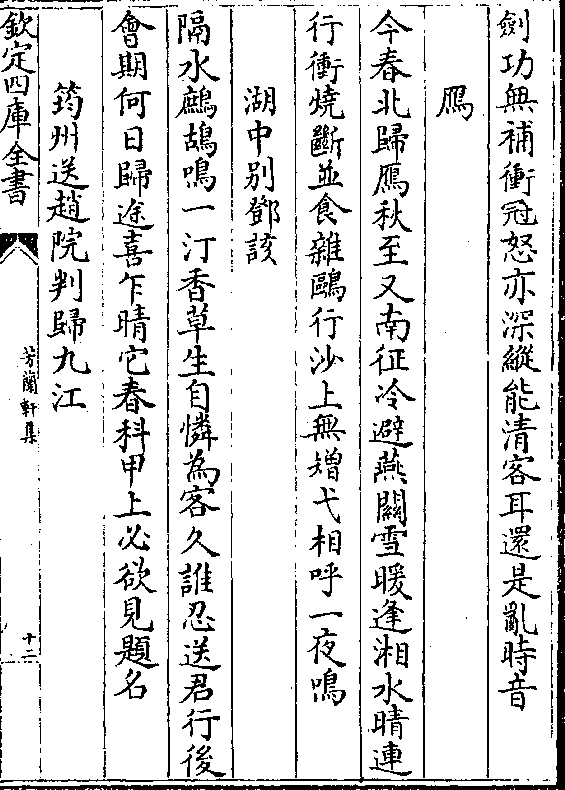 劍功無補衝冠怒亦深縱能清客耳還是亂時音
鴈
今春北歸鴈秋至又南征冷避燕關雪暖逢湘水晴連
行衝燒斷並食雜鷗行沙上無矰弋相呼一夜鳴
湖中别鄧該
隔水鷓鴣鳴一汀香草生自憐為客久誰忍送君行後
會期何日歸途喜乍晴它春科甲上必欲見題名
筠州送趙院判歸九江
欽定四庫全書
芳蘭軒集
十二